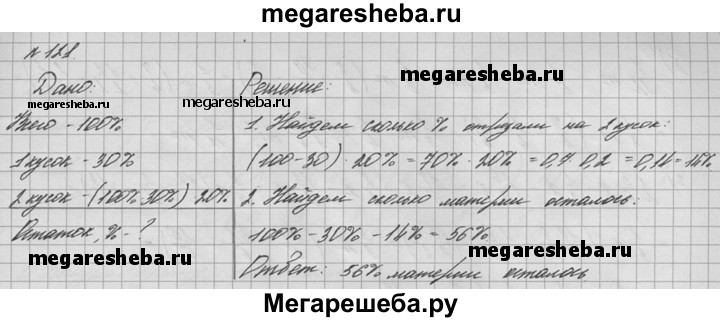 megaresheba.ru
№ 121.
Дано:
Всего - 100%
1 кусок - 30%
2 кусок - (100%-30%) 20%
Остаток, % - ?
Решение:
1. Найдем сколько % отрезали на 2 кусок:
(100-30) · 20% = 70% · 20% = 0,7 · 0,2 = 0,14 = 14%
2. Найдем сколько материи осталось:
100% - 30% - 14% = 56%
Ответ: 56% материи осталось
megaresheba.ru
megaresheba.ru
megaresheba.ru
megaresheba.ru
Мегарешеба.ру